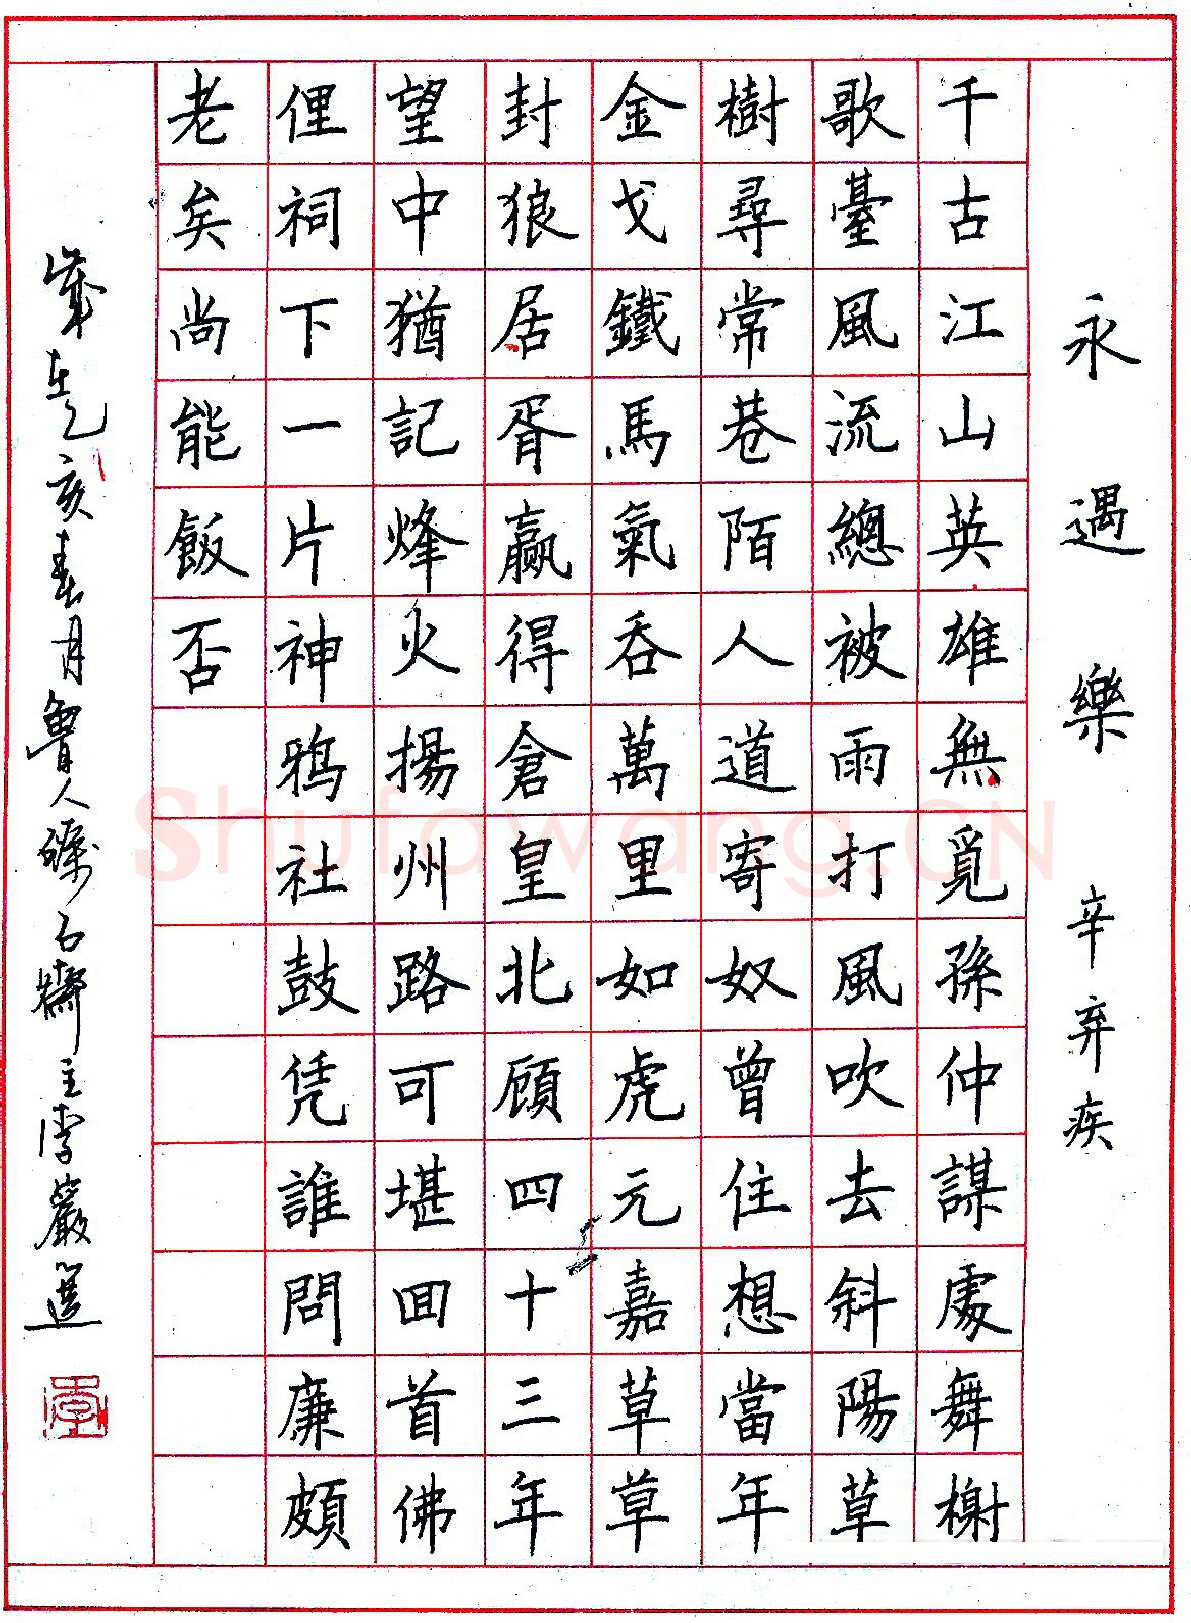 永遇樂 辛弃疾
千古江山英雄無覓孫仲謀處舞榭
歌臺風流總被雨打風吹去斜陽草
樹尋常巷陌人道寄奴曾住想當年
金戈鐵馬氣吞萬里如虎元嘉草草
封狼居胥赢得倉皇北顧四十三年
望中猶記烽火揚州路可堪回首佛
俚祠下一片神鴉社鼓凭誰問廉頗
老矣尚能飯否
歲在乙亥春月魯人礫石齋主李巖選
李
Shufawang.CN